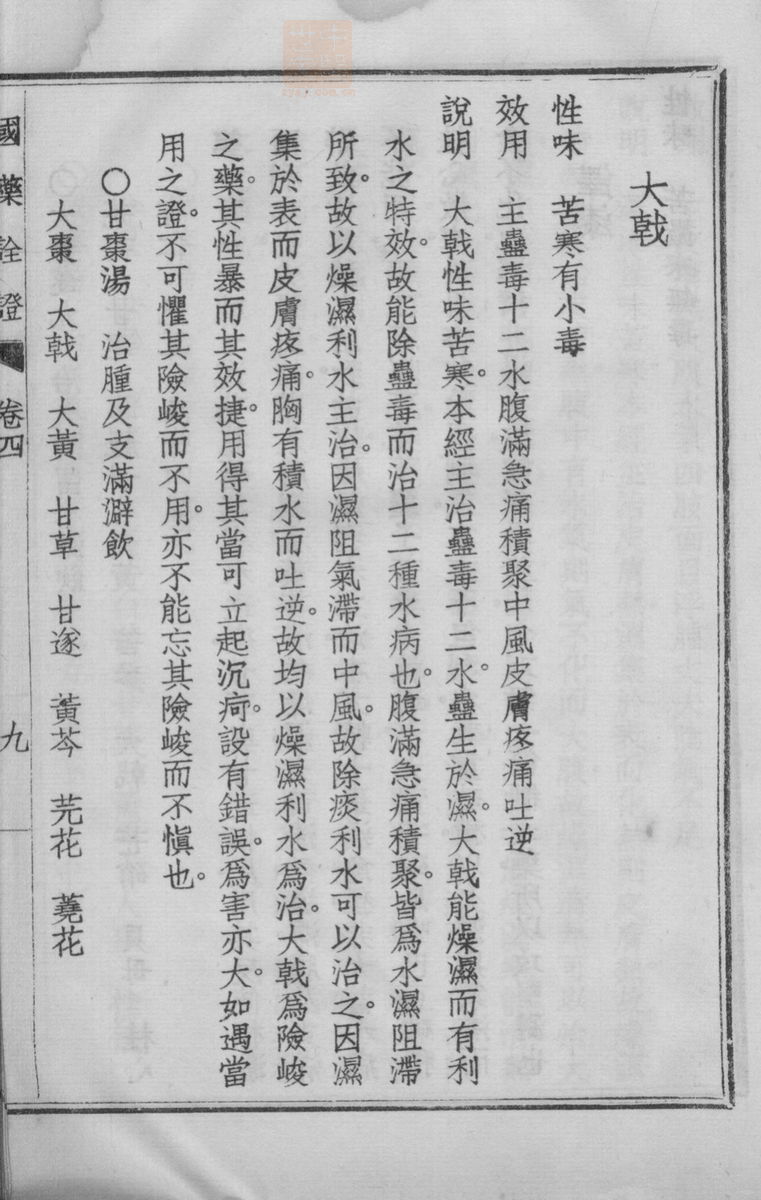 大戟
性味　苦寒有小毒
效用　主蠱毒十二水腹滿急痛積聚中風皮膚疼痛吐逆
說明　大戟性味苦寒。本經主治蠱毒十二水。蠱生於濕。大戟能燥濕而有利
水之特效。故能除蠱毒而治十二種水病也。腹滿急痛積聚。皆爲水濕阻滯
所致。故以燥濕利水主治。因濕阻氣滯而中風。故除痰利水可以治之。因濕
集於表而皮膚疼痛。胸有積水而吐逆。故均以燥濕利水爲治。大戟爲險峻
之藥。其性暴而其效捷。用得其當可立起沉疴。設有錯誤。爲害亦大。如遇當
用之證。不可懼其險峻而不用。亦不能忘其險峻而不愼也。
〇甘棗湯　治腫及支滿澼飲
大棗　大戟　大黃　甘草　甘遂　黃芩　芫花　蕘花
國藥詮證　卷四　九